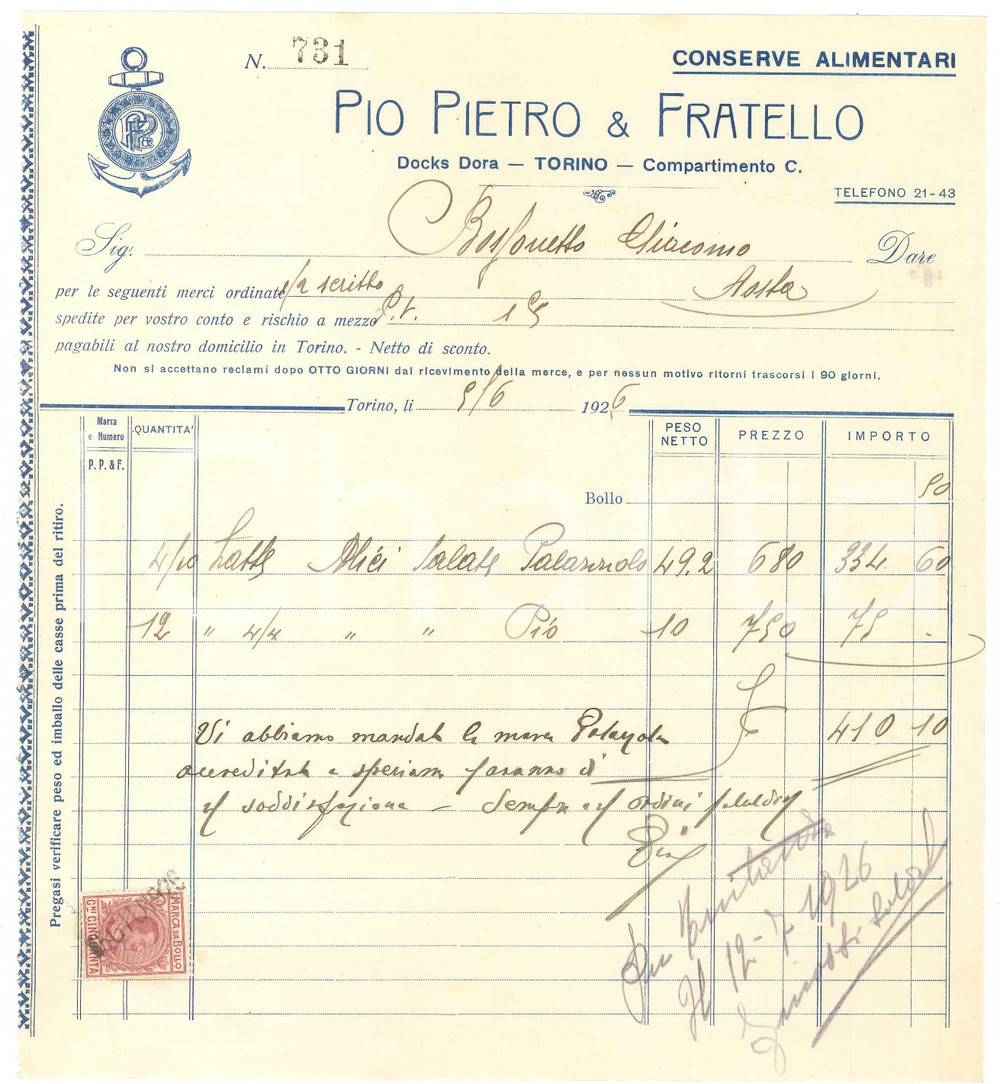 N. 731
CONSERVE ALIMENTARI
PIO PIETRO & FRATELLO
Docks Dora — TORINO — Compartimento C.
TELEFONO 21-43
Sig. Giacomo Dare
Aosta
per le seguenti merci ordinate s/a scritto
spedite per vostro conto e rischio a mezzo P.V.
pagabili al nostro domicilio in Torino. - Netto di sconto.
Non si accettano reclami dopo OTTO GIORNI dal ricevimento della merce, e per nessun motivo ritorni trascorsi i 90 giorni.
Torino, li 5/6 1926
Marca e Numero QUANTITA' PESO NETTO PREZZO IMPORTO
P. P. & F.
Bollo 50
4/10 Latte Alici Salate Palazzolo 49.2 680 334 60
12 " 4/4 " " Pio 10 750 75 .
410 10
Vi abbiamo mandato la marca Palazzolo
accreditata e speriamo saranno di
soddisfazione — Sempre ordini
Pio
Pregasi verificare peso ed imballo delle casse prima del ritiro.
MARCA DA BOLLO
C.MI CINQUANTA
1926
Per
Il 12-7-1926